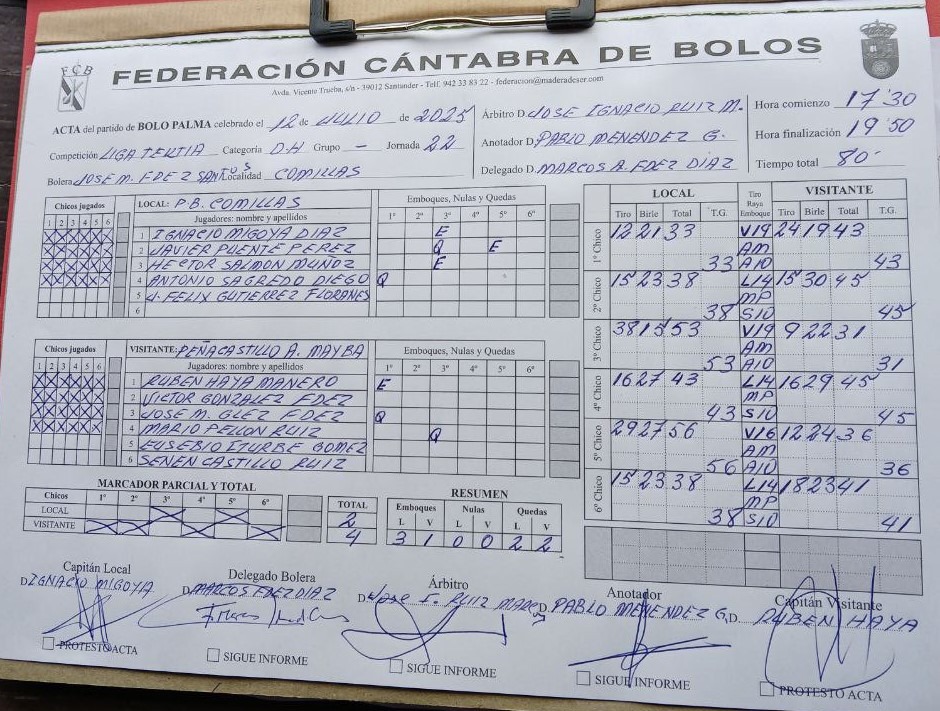 FCB
FEDERACIÓN CÁNTABRA DE BOLOS
Avda. Vicente Trueba, s/n - 39012 Santander - Telf. 942 33 83 22 - federacion@maderadeser.com
ACTA del partido de BOLO PALMA celebrado el 12 de JULIO de 2025
Competición LIGA TERTIA Categoría D.H Grupo - Jornada 22
Bolera JOSE M. FDEZ SANTOS Localidad COMILLAS
Árbitro D. JOSE IGNACIO RUIZ M.
Anotador D. PABLO MENENDEZ G.
Delegado D. MARCOS A. FDEZ DIAZ
Hora comienzo 17'30
Hora finalización 19'50
Tiempo total 80'
Chicos jugados
1 2 3 4 5 6
LOCAL: P.B. COMILLAS
Jugadores: nombre y apellidos
Emboques, Nulas y Quedas
1º 2º 3º 4º 5º 6º
1 IGNACIO MIGOYA DIAZ E
2 JAVIER PUENTE PEREZ Q E
3 HECTOR SALMON MUÑOZ E
4 ANTONIO SAGREDO DIEGO Q
5 J. FELIX GUTIERREZ FLORANES
6
Chicos jugados
1 2 3 4 5 6
VISITANTE: PEÑACASTILLO A. MAYBA
Jugadores: nombre y apellidos
Emboques, Nulas y Quedas
1º 2º 3º 4º 5º 6º
1 RUBEN HAYA MANERO E
2 VICTOR GONZALEZ FDEZ
3 JOSE M. GLEZ FDEZ Q
4 MARIO PELLON RUIZ Q
5 EUSEBIO ITURBE GOMEZ
6 SENEN CASTILLO RUIZ
MARCADOR PARCIAL Y TOTAL
Chicos 1º 2º 3º 4º 5º 6º TOTAL
LOCAL X X 2
VISITANTE X X X X 4
RESUMEN
Emboques Nulas Quedas
L V L V L V
3 1 0 0 2 2
LOCAL Tiro Raya Emboque VISITANTE
Tiro Birle Total T.G. Tiro Birle Total T.G.
1º Chico 12 21 33 V19 24 19 43
AM
33 A10 43
2º Chico 15 23 38 L14 15 30 45
MP
38 S10 45
3º Chico 38 15 53 V19 9 22 31
AM
53 A10 31
4º Chico 16 27 43 L14 16 29 45
MP
43 S10 45
5º Chico 29 27 56 V16 12 24 36
AM
56 A10 36
6º Chico 15 23 38 L14 18 23 41
MP
38 S10 41
Capitán Local
D. IGNACIO MIGOYA
PROTESTO ACTA
Delegado Bolera
D. MARCOS FDEZ DIAZ
SIGUE INFORME
Árbitro
D. Jose I. RUIZ MARCOS
SIGUE INFORME
Anotador
D. PABLO MENENDEZ G.
SIGUE INFORME
Capitán Visitante
D. RUBEN HAYA
PROTESTO ACTA